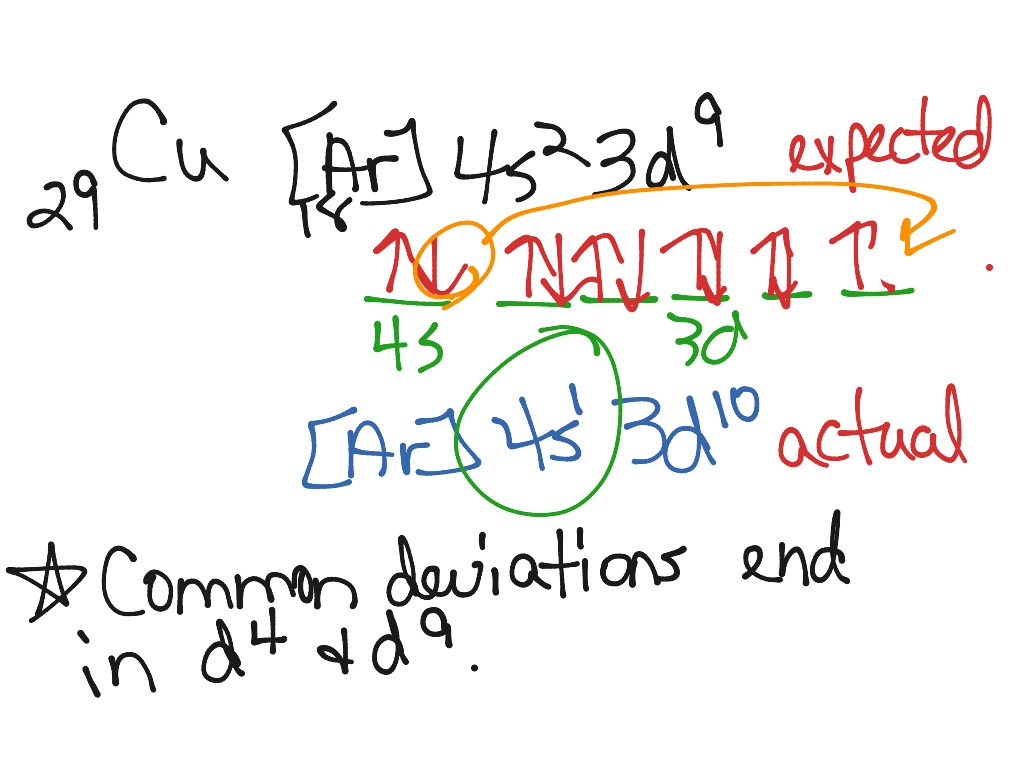 ₂₉Cu [Ar] 4s² 3d⁹ expected
18
4s 3d
[Ar] 4s¹ 3d¹⁰ actual
☆ Common deviations end
in d⁴ & d⁹.